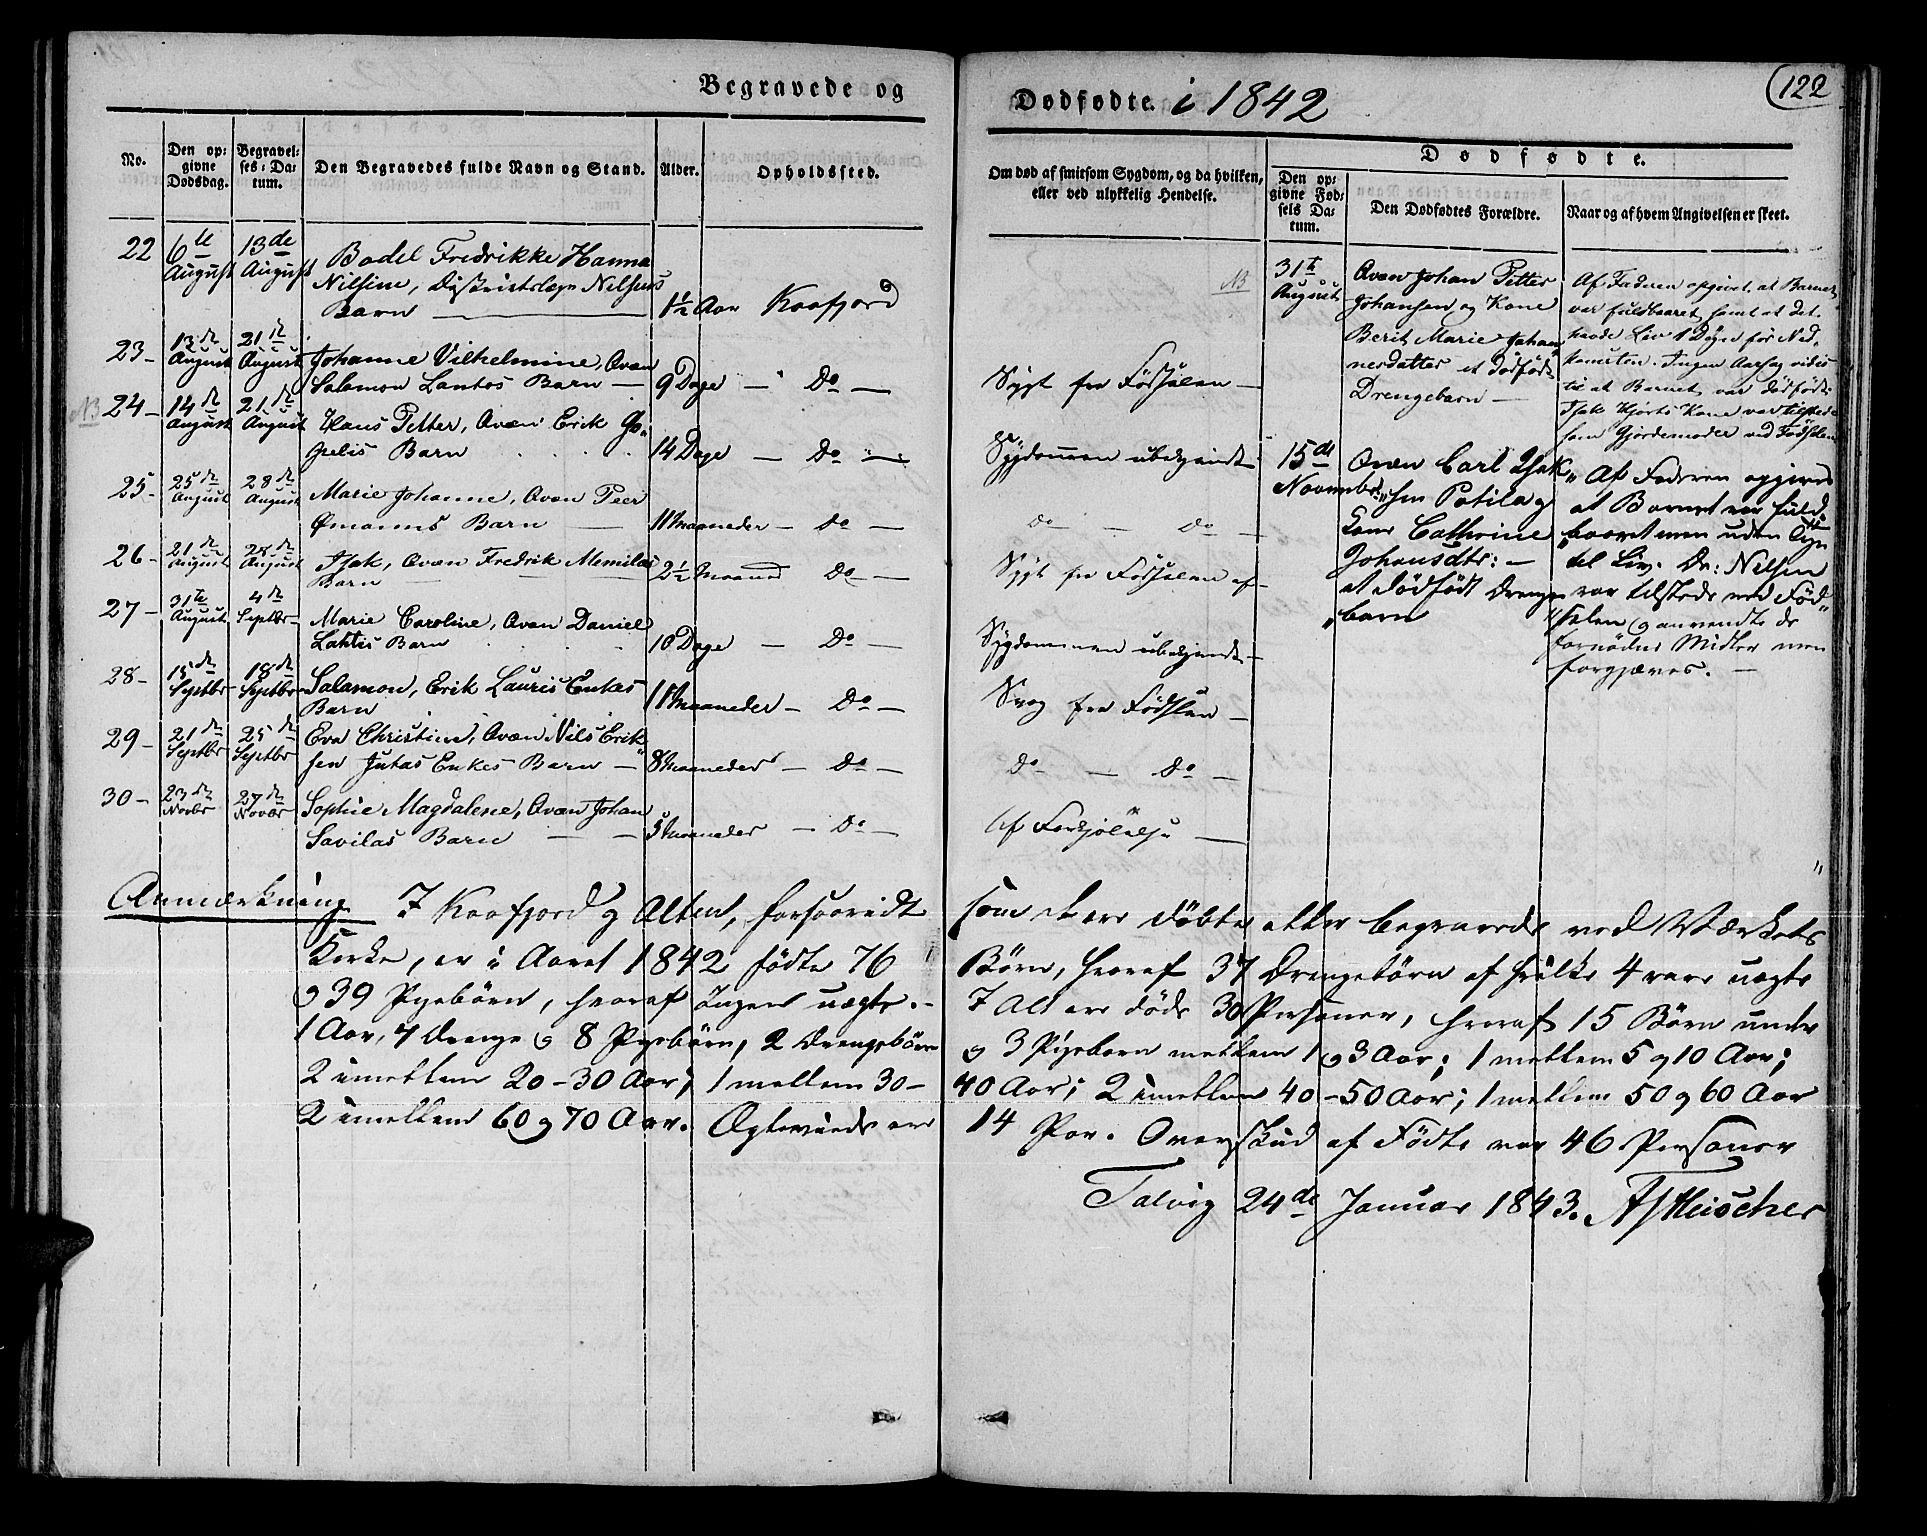 Begravede og
Dodfodte. i 1842
122
No.
Den op-
givne
Dodsdag.
Begravel-
ses-Da-
tum.
Den Begravedes fulde Navn og Stand.
Alder.
Opholdssted.
Om død af smitsom Sygdom, og da hvilken,
eller ved ulykkelig Hendelse.
Dodfodte.
Den op-
givne Fød-
sels Da-
tum.
Den Dodfodtes Forældre.
Naar og af hvem Angivelsen er skeet.
22 6te August 13de August Bodel Fredrikke Hanna
Nilsine, Districtslæge Nilsens
Barn 1½ Aar Kaafjord
23- 13de August 21de August Johanne Vilhelmine, Qvæn
Salamon Lantos Barn — 9 Dage — Do — Sygt fra Fødselen —
NB 24- 14de August 21de August Hans Petter, Qvæn Erik
Barn 14 Dage — Do — Sygdommen ubekjendt
25- 25de August 28de August Marie Johanne, Qvæn Peer
Ømanns Barn — 11 Maaneder — Do — Do — Do —
26- 21de August 28de August Isak, Qvæn Fredrik
Barn 2½ Maaned Do — Sygt fra Fødselen af
27- 31te August 4de Septbr Marie Caroline, Qvæn Daniel
Lahtis Barn 10 Dage — Do — Sygdommen ubekjendt —
28- 15de Septbr 18de Septbr Salamon, Erik Lauris Enkes
Barn 11 Maaneder — Do — Svag fra Fødslen —
29- 21de Septbr 25de Septbr Eva Christine, Qvæn Nils Erik-
sen Jutas Enkes Barn — 8 Maaneder — Do — Do — Do —
30- 23de Novbr 27de Novbr Sophie Magdalene, Qvæn Johan
Savilas Barn 5 Maaneder — Do — Af Forkjølelse —
NB 31te August
Qvæn Johan Petter
Johansen og Kone
Berit Marie Johan-
nesdatter et dødfødt
Drengebarn —
Af Faderen opgivet, at Barnet
var fuldbaaret, samt at det
havde Liv 1 Døgn før Ned-
komsten. Ingen Aarsag vides
til at Barnet var dødfødt
Isak Hjorts Kone var tilstede
som Gjordemoder ved Fødselen
15de Novembr.
Qvæn Carl Isak-
sen Potila og
Kone Cathrine
Johansdtr: —
et dødfødt Drenge-
barn
Af Faderen opgives
at Barnet var fuld-
baaret men uden Tegn
til Liv. Dr: Nilsen
var tilstede ved Fød-
selen og anvendte de
fornødne Midler men
forgjæves. —
Anmærkning I Kaafjord og Alten, forsaavidt som de ere døbte eller begravede ved Værkets
Kirke, er i Aaret 1842 fødte 76 Børn, hvoraf 37 Drengebørn af hvilke 4 vare uægte
og 39 Pigebørn, hvoraf Ingen uægte. — I Alt ere døde 30 Personer, hvoraf 15 Børn under
1 Aar, 7 Drenge og 8 Pigebørn, 2 Drengebørn og 3 Pigebørn mellem 1 og 3 Aar; 1 mellem 5 og 10 Aar;
2 imellem 20-30 Aar; 1 mellem 30- 40 Aar; 2 imellem 40-50 Aar; 1 mellem 50 og 60 Aar
2 imellem 60 og 70 Aar. Ægteviede ere 14 Par. Overskud af Fødte var 46 Personer
Talvig 24de Januar 1843. A Fleischer